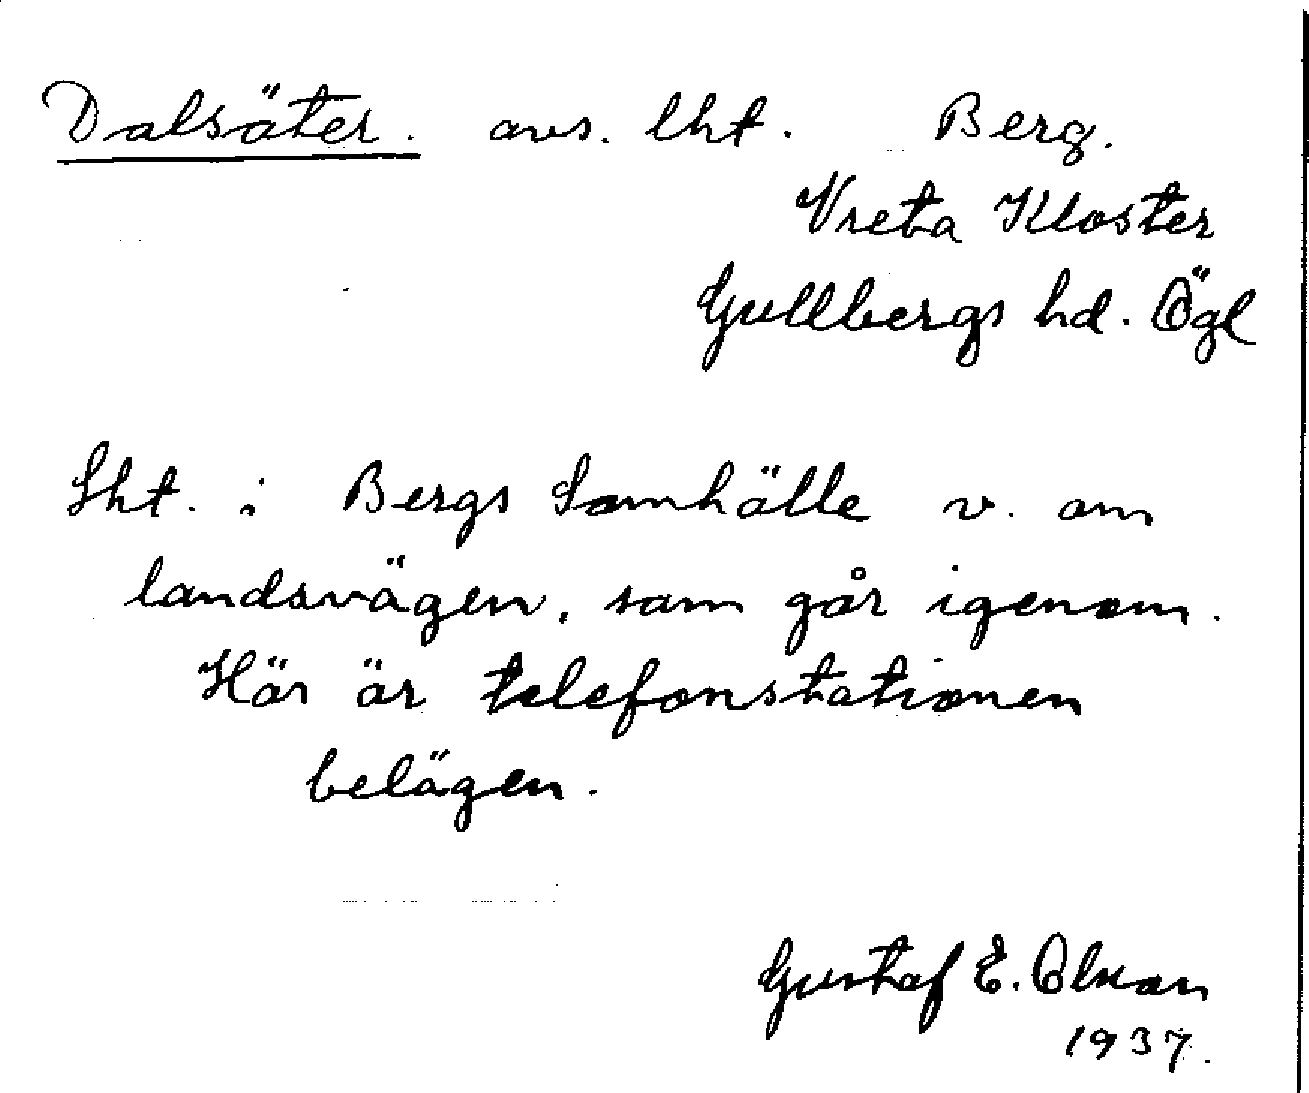 Dalsäter. avs. lht. Berg.
Vreta Kloster
Gullbergs hd. Ögl
Lht. i Bergs Samhälle v. om
landsvägen, som går igenom.
Här är telefonstationen
belägen.
Gustaf E. Olsson
1937.